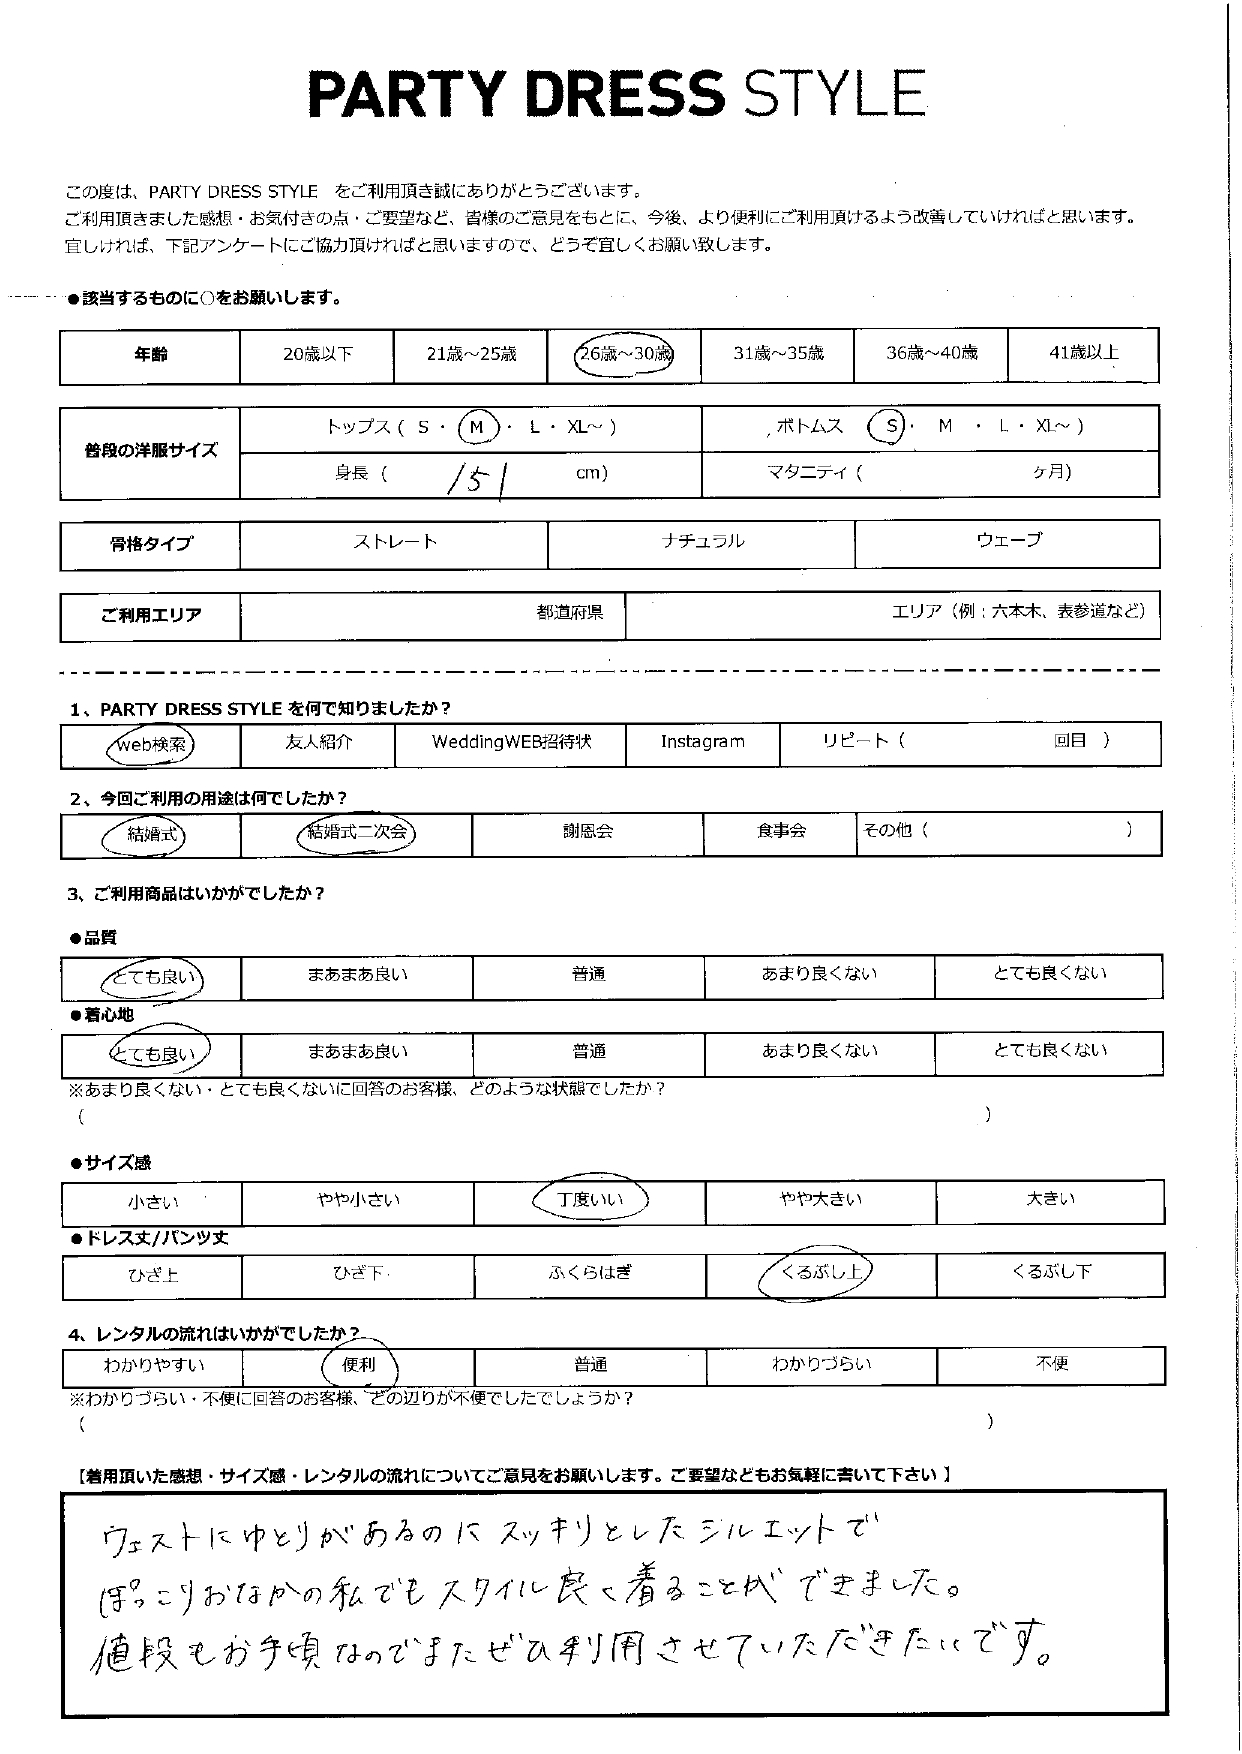 PARTY DRESS STYLE
この度は、PARTY DRESS STYLE をご利用頂き誠にありがとうございます。
ご利用頂きました感想・お気付きの点・ご要望など、皆様のご意見をもとに、今後、より便利にご利用頂けるよう改善していければと思います。
宜しければ、下記アンケートにご協力頂ければと思いますので、どうぞ宜しくお願い致します。
●該当するものに○をお願いします。
年齢 20歳以下 21歳～25歳 26歳～30歳 31歳～35歳 36歳～40歳 41歳以上
普段の洋服サイズ
トップス ( S ・ M ・ L ・ XL～ ) ボトムス S ・ M ・ L ・ XL～ )
身長 ( 151 cm) マタニティ ( ヶ月)
骨格タイプ ストレート ナチュラル ウェーブ
ご利用エリア 都道府県 エリア（例：六本木、表参道など）
1、PARTY DRESS STYLE を何で知りましたか？
web検索 友人紹介 WeddingWEB招待状 Instagram リピート（ 回目 ）
2、今回ご利用の用途は何でしたか？
結婚式 結婚式二次会 謝恩会 食事会 その他（ ）
3、ご利用商品はいかがでしたか？
●品質
とても良い まあまあ良い 普通 あまり良くない とても良くない
●着心地
とても良い まあまあ良い 普通 あまり良くない とても良くない
※あまり良くない・とても良くないに回答のお客様、どのような状態でしたか？
（ ）
●サイズ感
小さい やや小さい 丁度いい やや大きい 大きい
●ドレス丈/パンツ丈
ひざ上 ひざ下 ふくらはぎ くるぶし上 くるぶし下
4、レンタルの流れはいかがでしたか？
わかりやすい 便利 普通 わかりづらい 不便
※わかりづらい・不便に回答のお客様、どの辺りが不便でしたでしょうか？
（ ）
【着用頂いた感想・サイズ感・レンタルの流れについてご意見をお願いします。ご要望などもお気軽に書いて下さい】
ウェストにゆとりがあるのにスッキリとしたシルエットで
ぽっこりおなかの私でもスタイル良く着ることができました。
値段もお手頃なのでまたぜひ利用させていただきたいです。